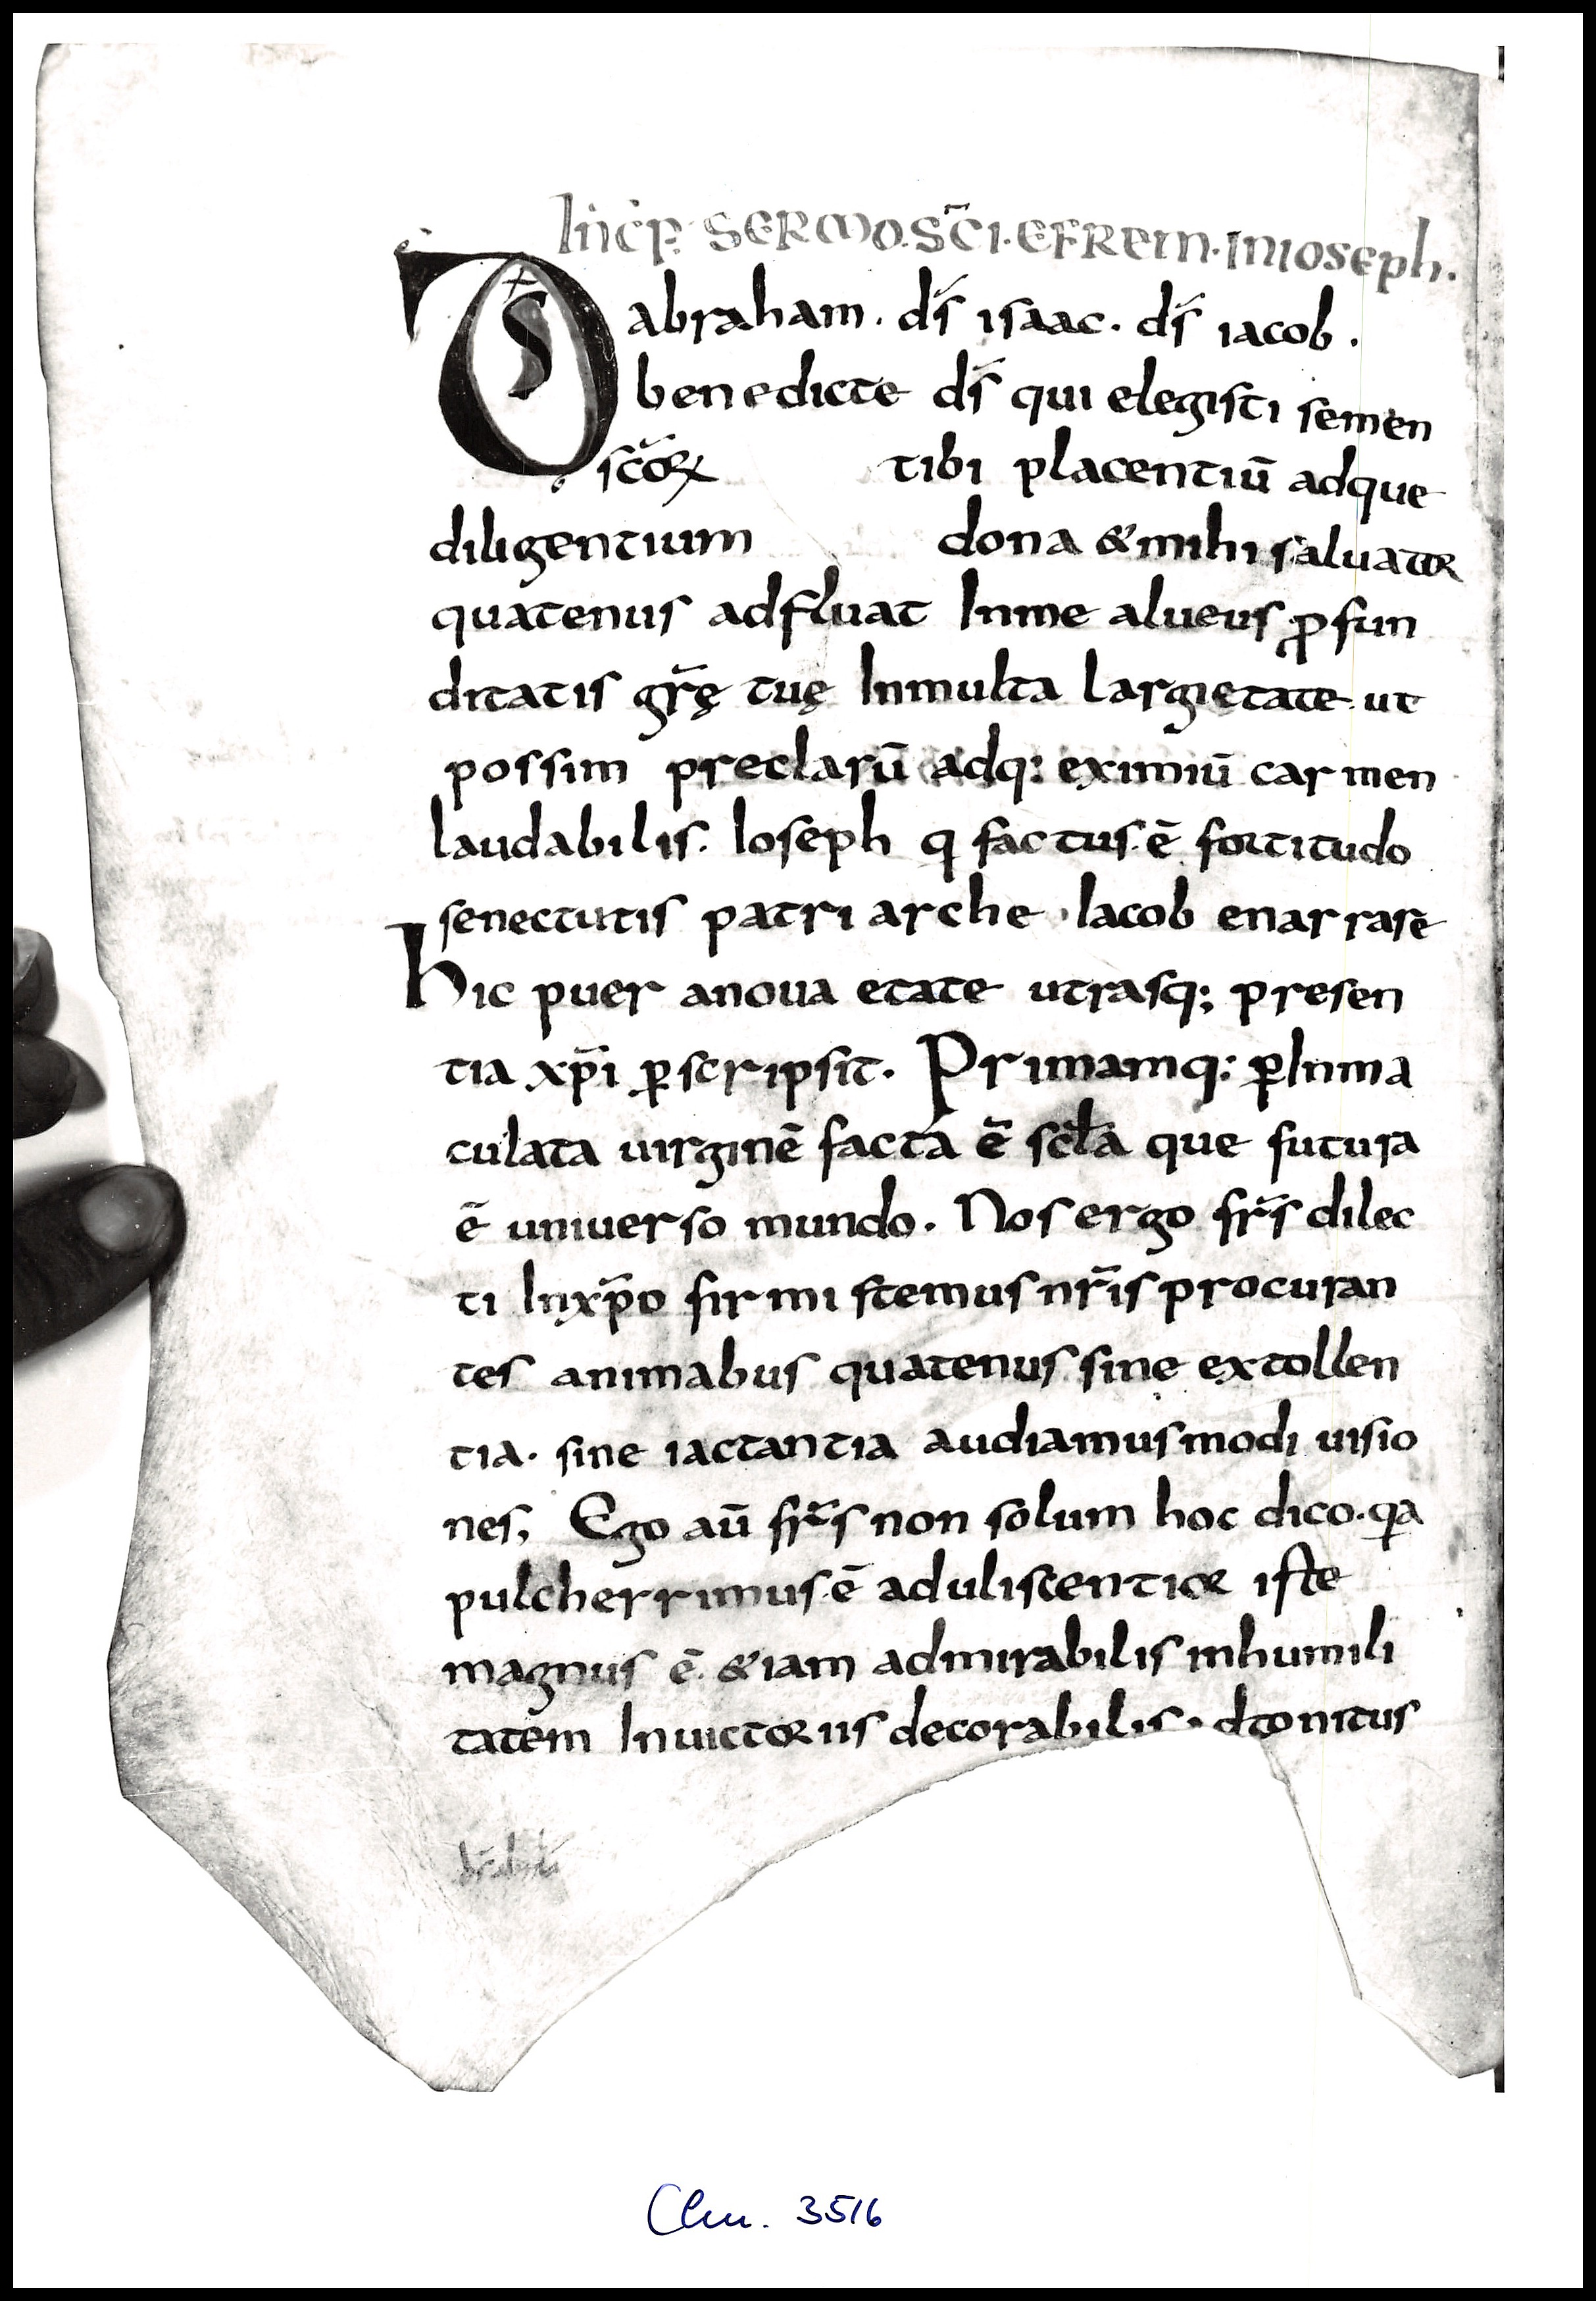 Incip̅. SERMO. SC̅I. EFREM. IN IOSEPH.
D̅S abraham. d̅s isaac. d̅s iacob.
benedicte d̅s qui elegisti semen
sc̅oꝝ tibi placentiū adque
diligentium dona & mihi saluator
quatenus adfluat In me alueus ꝓfun
ditatis gr̅ę tuę In multa largietate ut
possim preclarū adq: eximiū carmen
laudabilis. Ioseph q factus ē fortitudo
senectutis patriarche. Iacob enarrarē
hic puer a noua etate utrasq; presen
tia xp̅i ꝑscripsit. Primamq: ꝑ Inma
culata uirginē facta ē scl̅a que futura
ē uniuerso mundo. Nos ergo fr̅s dilec
ti In xp̅o firmi stemus nr̅is procuran
tes animabus quatenus sine extollen
tia. sine iactantia audiamus modi uisio
nes, Ego aū fr̅s non solum hoc dico. qa
pulcherrimus ē aduliscentior iste
magnus ē. &iam admirabilis in humili
tatem In uictoriis decorabilis. dtonitus
Clm. 3516